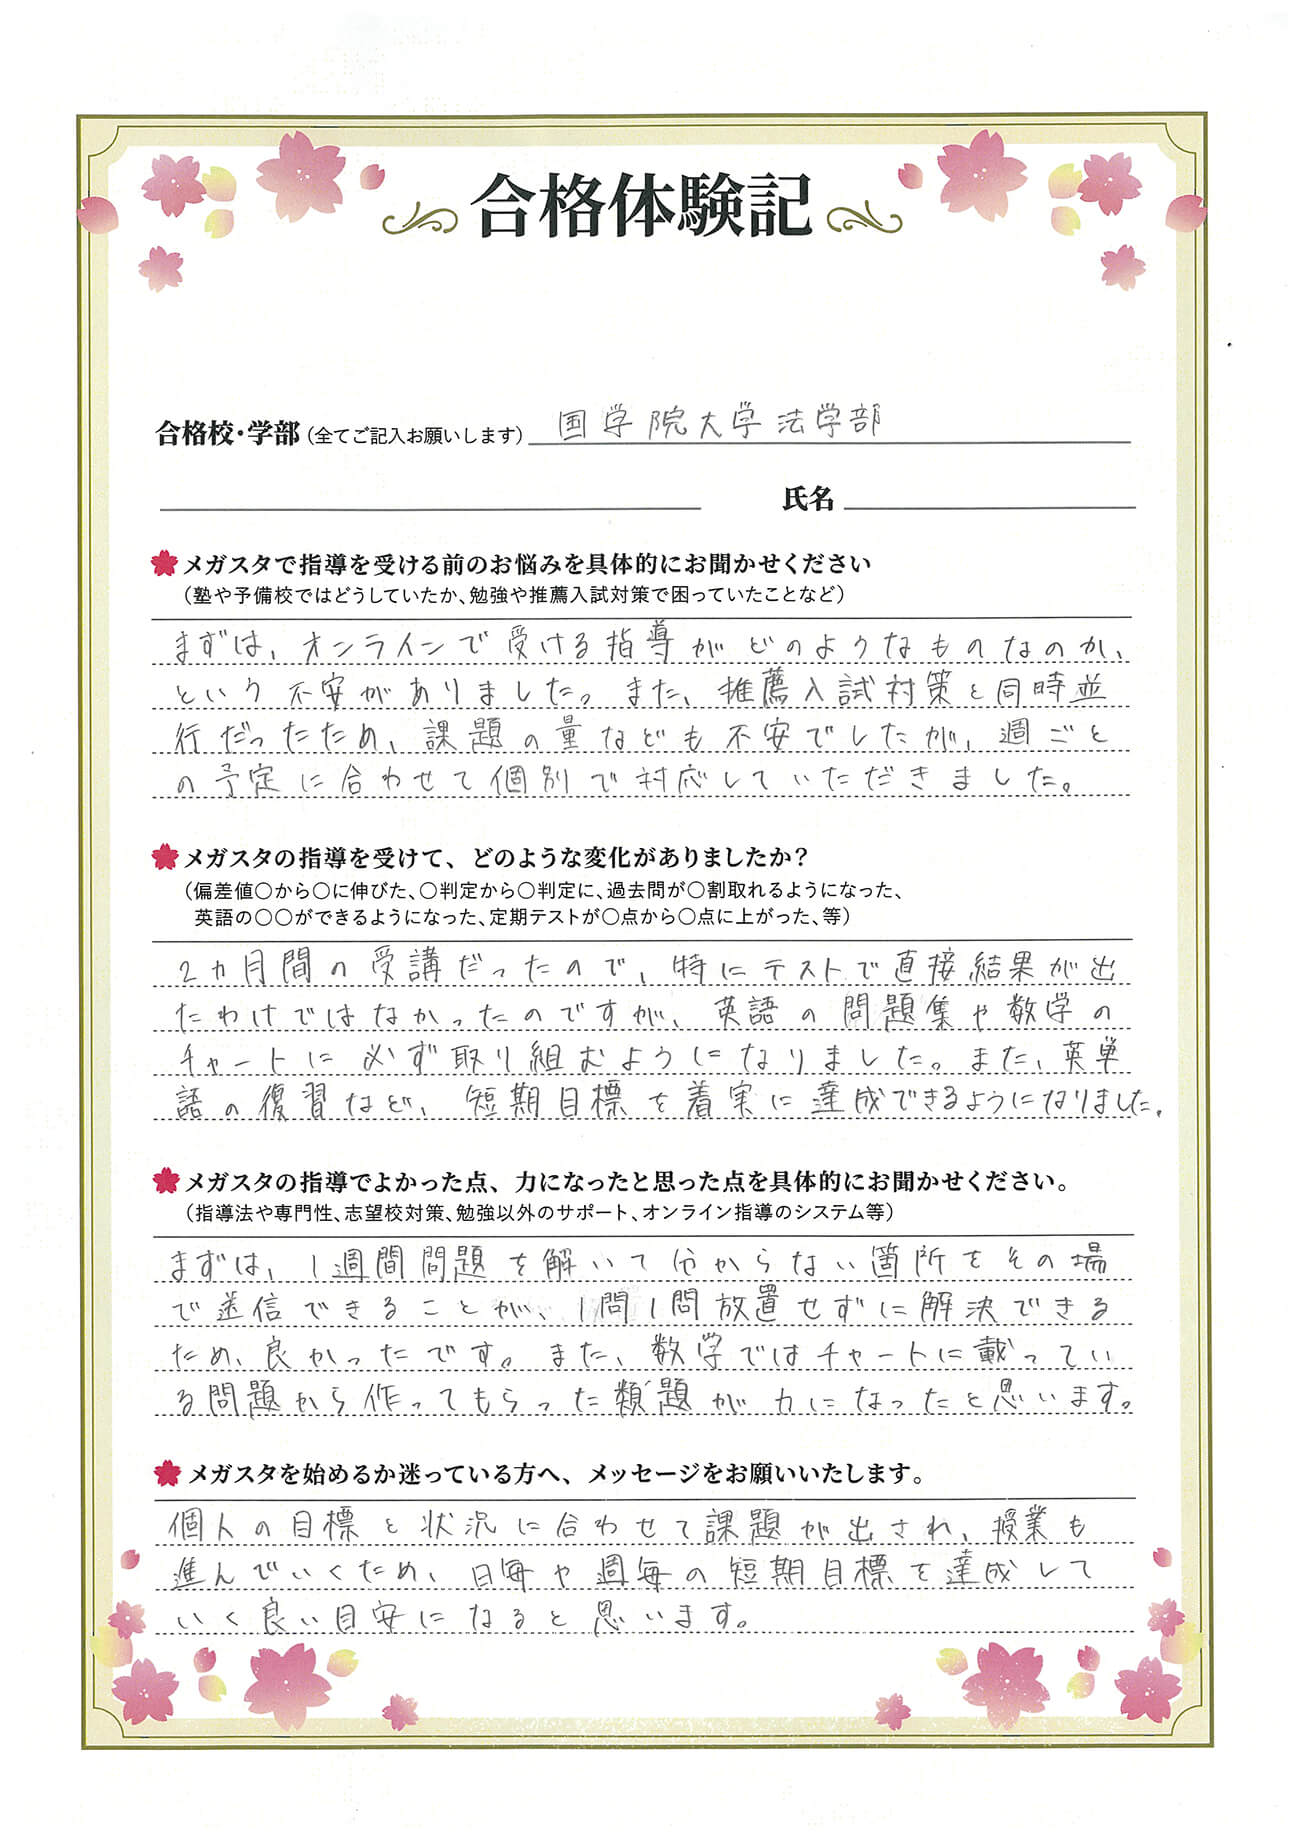 合格体験記
合格校・学部(全てご記入お願いします) 国学院大学法学部
氏名
メガスタで指導を受ける前のお悩みを具体的にお聞かせください
(塾や予備校ではどうしていたか、勉強や推薦入試対策で困っていたことなど)
まずは、オンラインで受ける指導がどのようなものなのか、
という不安がありました。また、推薦入試対策と同時並
行だったため、課題の量なども不安でしたが、週ごと
の予定に合わせて個別で対応していただきました。
メガスタの指導を受けて、どのような変化がありましたか?
(偏差値〇から〇に伸びた、〇判定から〇判定に、過去問が〇割取れるようになった、
英語の〇〇ができるようになった、定期テストが〇点から〇点に上がった、等)
2カ月間の受講だったので、特にテストで直接結果が出
たわけではなかったのですが、英語の問題集や数学の
チャートに必ず取り組むようになりました。また、英単
語の復習など、短期目標を着実に達成できるようになりました。
メガスタの指導でよかった点、力になったと思った点を具体的にお聞かせください。
(指導法や専門性、志望校対策、勉強以外のサポート、オンライン指導のシステム等)
まずは、1週間問題を解いて分からない箇所をその場
で送信できることが、1問1問放置せずに解決できる
ため、良かったです。また、数学ではチャートに載ってい
る問題から作ってもらった類題が力になったと思います。
メガスタを始めるか迷っている方へ、メッセージをお願いいたします。
個人の目標と状況に合わせて課題が出され、授業も
進んでいくため、日毎や週毎の短期目標を達成して
いく良い目安になると思います。